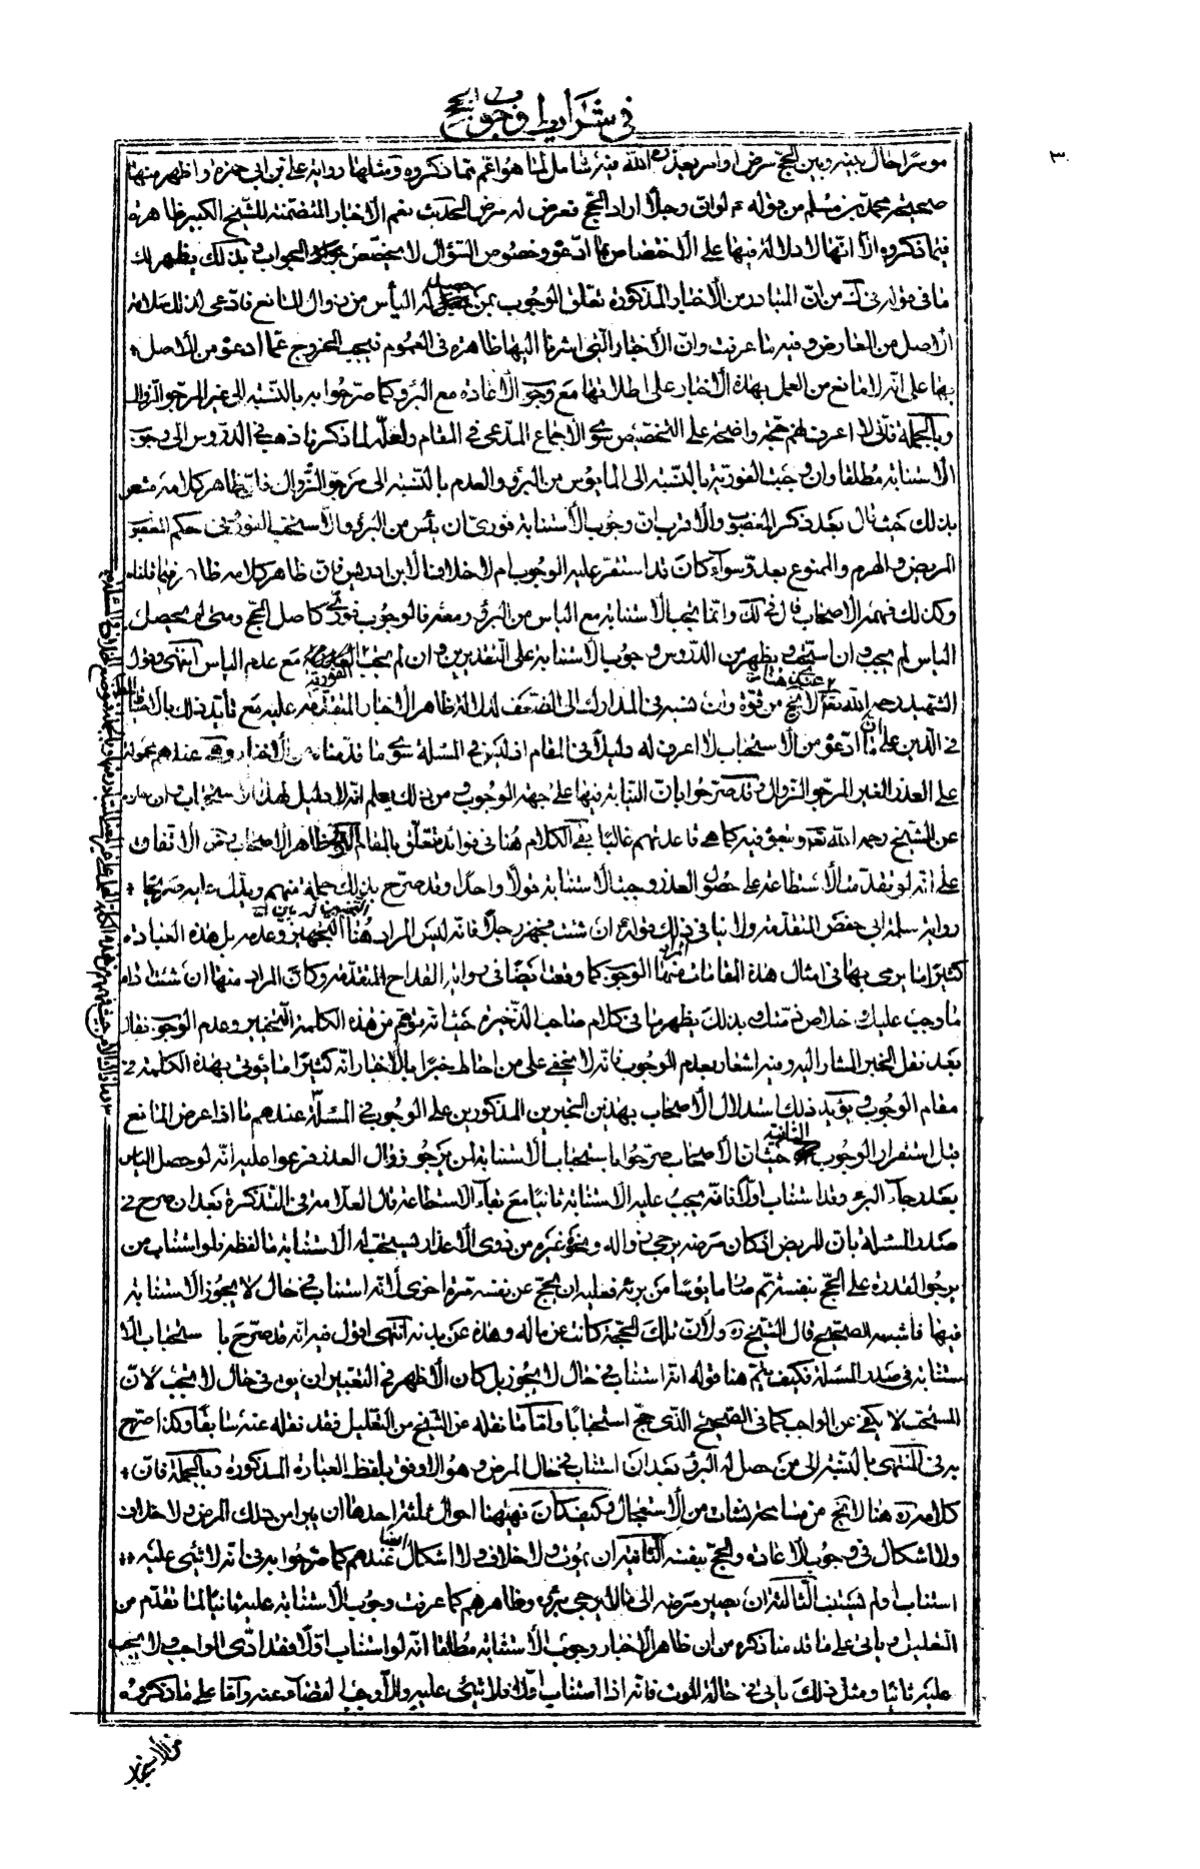 ٣٠
في شرايط وجوب الحج
موسرا حال بينه وبين الحج مرض او امر يعذره الله فيه شامل لما هو اعم مما ذكروه ومثلها رواية علي بن ابي حمزة واظهر منهما
صحيحة محمد بن مسلم من قوله ع لو ان رجلا اراد الحج فعرض له مرض الحديث نعم الاخبار المتضمنة للشيخ الكبير ظاهرة
فيما ذكروه الا انها لا دلالة فيها على الاختصاص بما ادعوه وخصوص السؤال لا يخصص الجواب وبذلك يظهر لك
ما في قوله في من ان المتبادر من الاخبار المذكورة تعلق الوجوب بمن حصل له الياس من زوال المانع فادعى لذلك سلامة
الاصل من المعارض وفيه ما عرفت وان الاخبار التي اشرنا اليها ظاهرة في العموم فيجب الخروج عما ادعوه من الاصل
بها على انه لا مانع من العمل بهذه الاخبار على اطلاقها مع وجوب الاعادة مع البرء كما صرحوا به بالنسبة الى غير المرجو الزوال
وبالجملة فاني لا اعرف لهم حجة واضحة على التخصيص سوى الاجماع المدعى في المقام ولعله لما ذكرنا ذهب في الدروس الى وجوب
الاستنابة مطلقا وان وجبت الفورية بالنسبة الى المايوس من البرء والعدم بالنسبة الى مرجو الزوال فان ظاهر كلامه مشعر
بذلك حيث قال بعد ذكر المعضوب والاقرب ان وجوب الاستنابة فوري ان يئس من البرء والا استحب الفور وفي حكم المعضوب
المريض والهرم والممنوع بعدو سواء كان قد استقر عليه الوجوب ام لا خلافا لابن ادريس فان ظاهر كلامه فيما قلناه
وكذلك فهمه الاصحاب قال في لك وانما يجب الاستنابة مع الياس من البرء ومعه فالوجوب فوري كاصل الحج ومتى لم يحصل
الياس لم يجب وان استحب ويظهر من الدروس وجوب الاستنابة على التقديرين وان لم يجب الفورية مع عدم الياس انتهى وقول
الشهيد رحمه الله نعم لا يخ عندي هنا من قوة وان نسبه في المدارك الى الضعف لدلالة ظاهر الاخبار المتقدمة عليه مع تأيد ذلك بالاحتياط
في الدين على ان ما ادعوه من الاستحباب لا اعرف له دليلا في المقام اذ ليس في المسئلة سوى ما قدمناه من الاخبار وهي عندهم محمولة
على العذر الغير المرجو الزوال وقد صرحوا بان النيابة فيها على جهة الوجوب ومن ذلك يعلم انه لا دليل لهذا الاستحباب
عن الشيخ رحمه الله تعه وتبعوه فيه كما هي قاعدتهم غالبا بقي الكلام هنا في فوائد تتعلق بالمقام ظاهر الاصحاب الاتفاق
على انه لو تقدمت الاستطاعة على حصول العذر وجبت الاستنابة قولا واحدا وقد صرح بذلك جملة منهم ويدل عليه صريحا
رواية سلمة ابي حفص المتقدمة ولا ينافي ذلك قوله ان شئت فجهز رجلا فانه ليس المراد هنا التخيير بين التجهيز وعدمه بل هذه العبادة
كثيرا ما يرمى بها في امثال هذه المقامات مرادا منها الوجوب كما وقعت ايضا في رواية القداح المتقدمة وكان المراد منها ان شئت اداء
ما وجب عليك وخلاص ذمتك وبذلك يظهر ما في كلام صاحب الذخيرة حيث انه توهم من هذه الكلمة التخيير وعدم الوجوب فقال
بعد نقل الخبر المشار اليه وفيه اشعار بعدم الوجوب فانه لا يخفى على من احاط خبرا بالاخبار انه كثيرا ما يؤتى بهذه الكلمة في
مقام الوجوب ويؤيد ذلك استدلال الاصحاب بهذين الخبرين المذكورين على الوجوب في المسئلة عندهم ما اذا عرض المانع
قبل استقرار الوجوب الثانية حيث ان الاصحاب صرحوا باستحباب الاستنابة لمن يرجو زوال العذر فرعوا عليه انه لو حصل الياس
بعد رجاء البرء وقد استناب اولا فانه يجب عليه الاستنابة ثانيا مع بقاء الاستطاعة قال العلامة في التذكرة بعد ان صرح في
صدر المسئلة بان المريض اذا كان مرضه يرجى زواله ونحو غيره من ذوي الاعذار يستحب له الاستنابة ما لفظه فلو استناب من
يرجو القدرة على الحج بنفسه ثم صار مايوسا من برئه فعليه ان يحج عن نفسه مرة اخرى لانه استناب في حال لا يجوز الاستنابة
فيها فاشبه الصحيح قال الشيخ ره ولان تلك الحجة كانت عن ماله وهذه عن بدنه انتهى اقول فيه انه قد صرح باستحباب الا
ستنابة في صدر المسئلة فكيف يتم هنا قوله انه استناب في حال لا يجوز بل كان الاظهر في التعبير ان يق في حال لا يجب لان
المستحب لا يكفي عن الواجب كما في الصحيح الذي حج استحبابا واما ما نقله عن الشيخ من التعليل فقد نقله عنه سابقا وكذا صرح
به في المنتهى بالنسبة الى من حصل له البرء بعد ان استناب في حال المرض وهو الاوفق بلفظ العبارة المذكورة وبالجملة فان
كلامه ره هنا لا يخ من مسامحة نشات من الاستعجال وكيف كان فههنا احوال ثلثة احدها ان يبرا من ذلك المرض ولا خلاف
ولا اشكال في وجوب الاعادة والحج بنفسه الثانية ان يموت ولا خلاف ولا اشكال ايضا عندهم كما صرحوا به في انه لا شئ عليه
استناب او لم يستنب الثالثة ان يصير مرضه الى ما لا يرجى برؤه وظاهرهم كما عرفت وجوب الاستنابة عليه ثانيا لما تقدم من
التعليل وياتي على ما قدمنا ذكره من ان ظاهر الاخبار وجوب الاستنابة مطلقا انه لو استناب اولا فقد ادى الواجب ولا يجب
عليه ثانيا ومثل ذلك ياتي في حالة الموت فانه اذا استناب اولا فلا شئ عليه والا وجب القضاء عنه واما على ما ذكروه